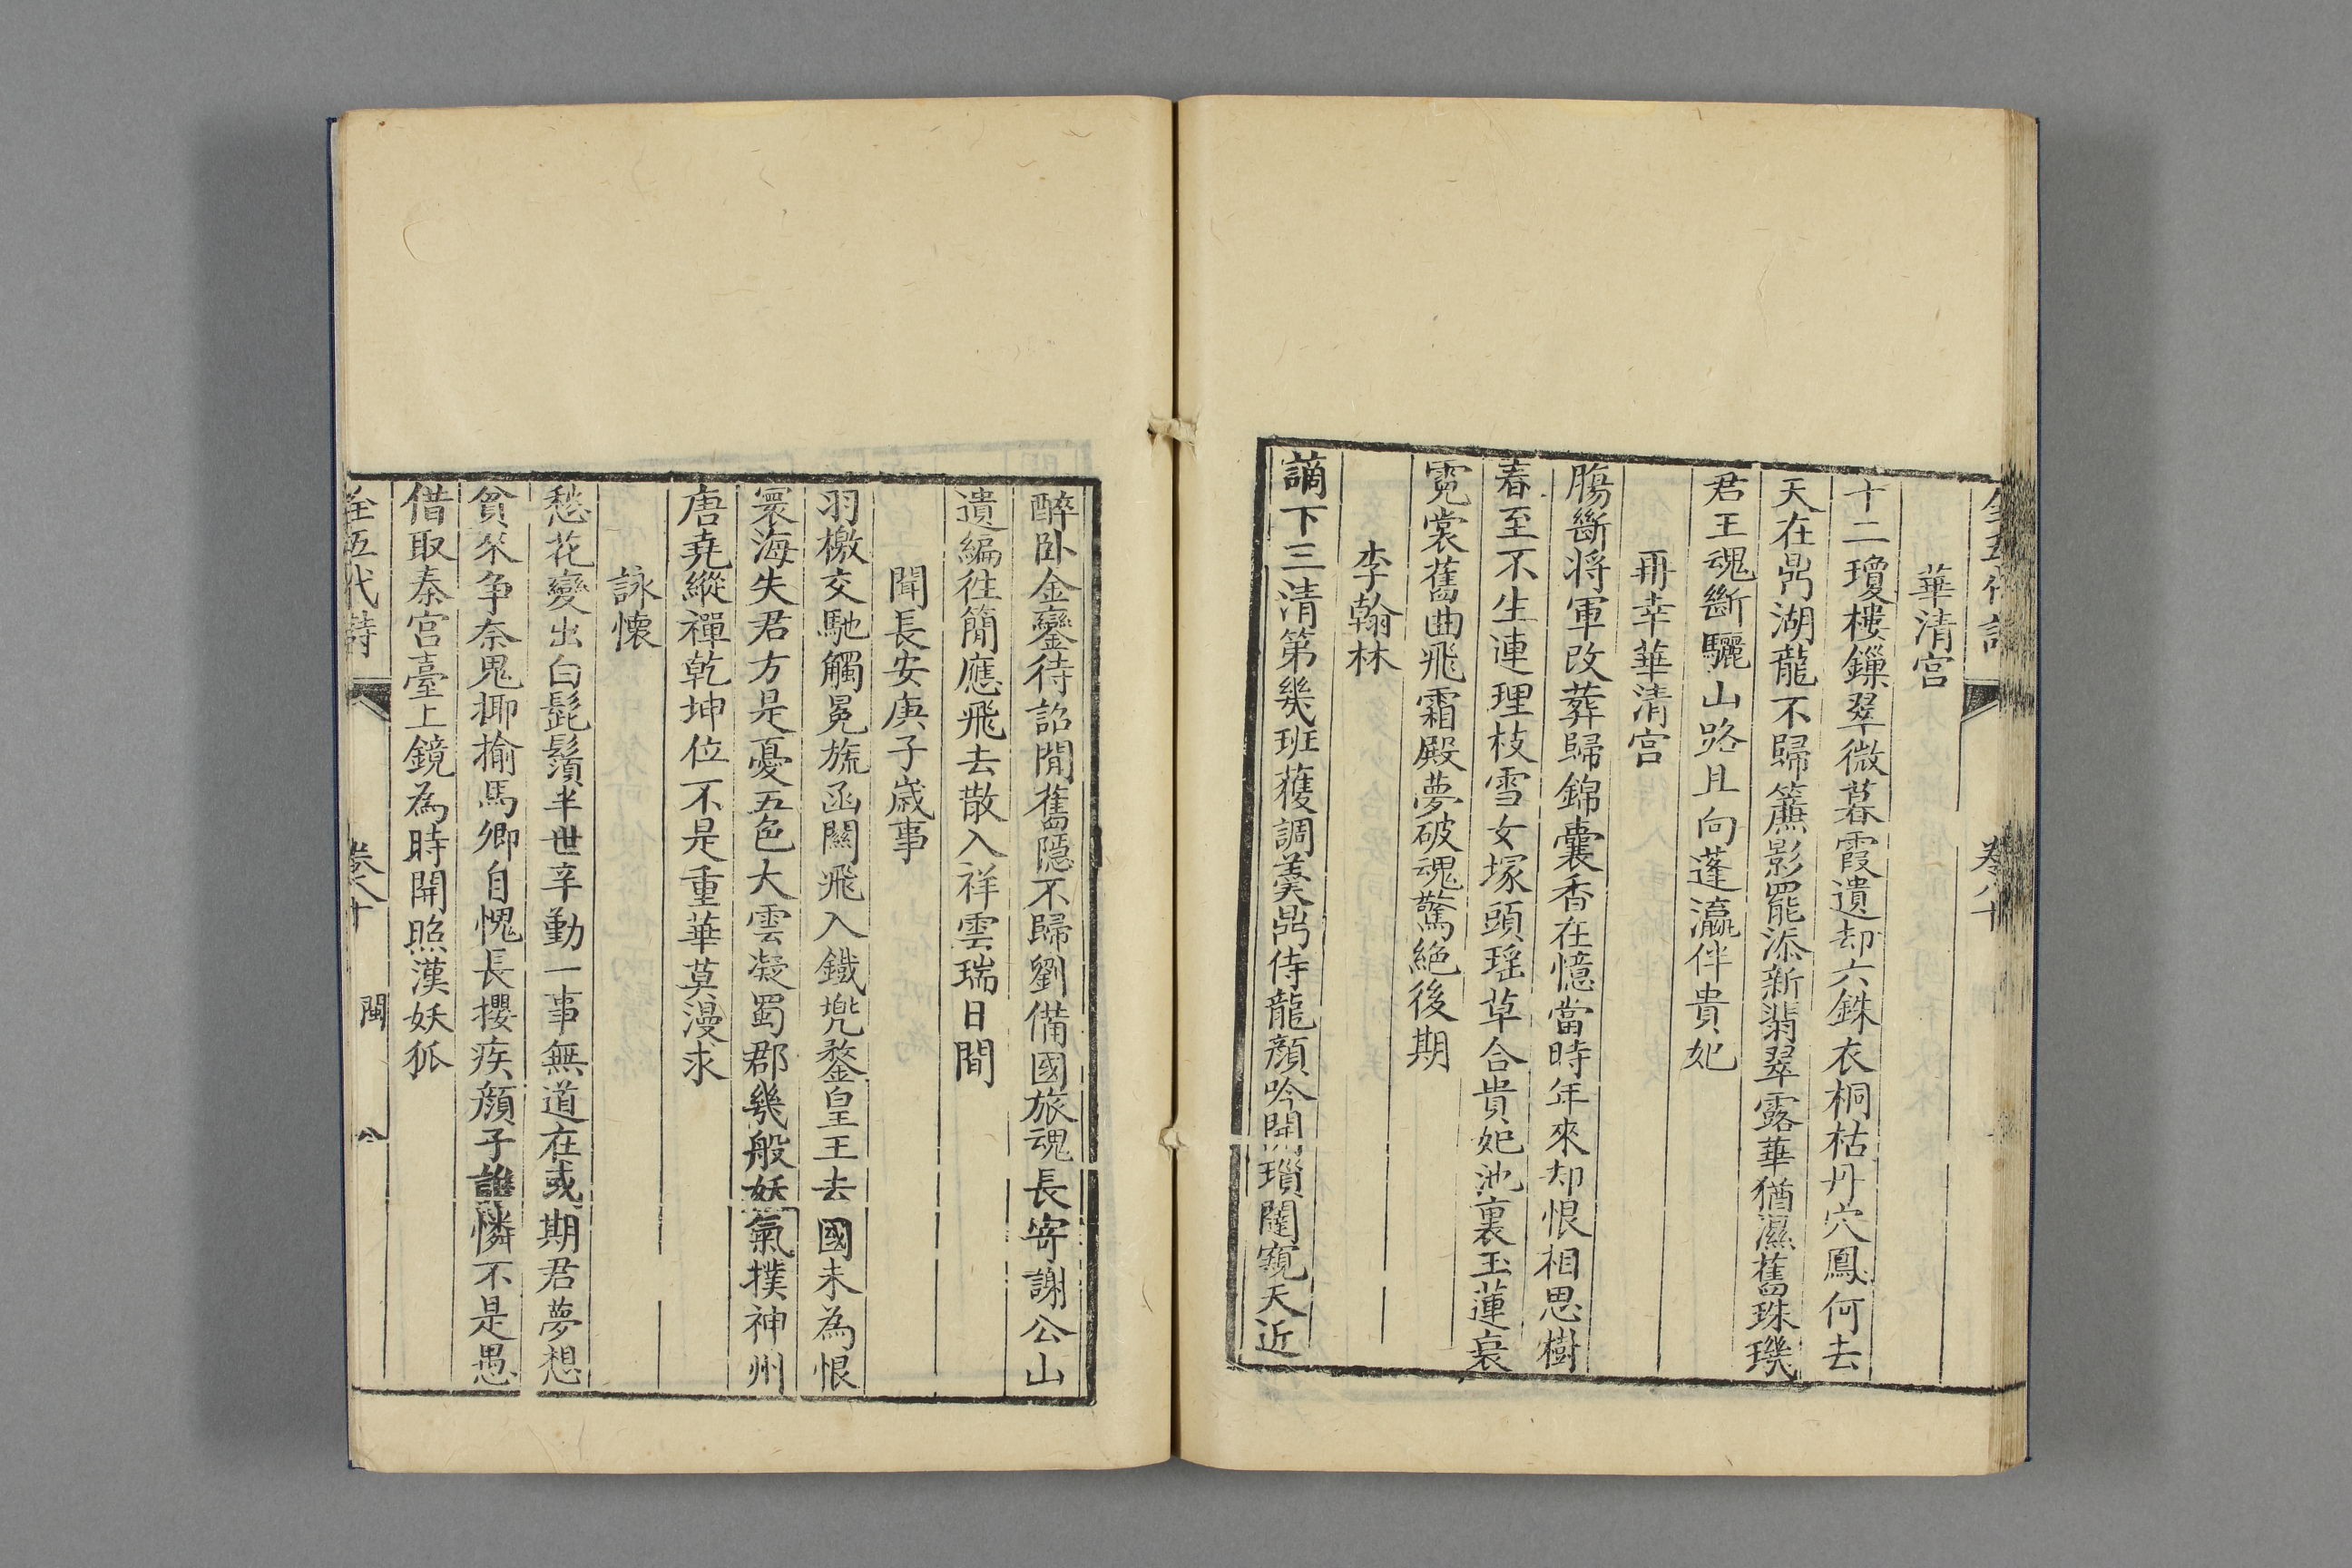 全五代詩 卷八十
華清宮
十二瓊樓鏁翠微暮霞遺却六銖衣桐枯丹穴鳳何去
天在鼎湖龍不歸簾影罷添新翡翠露華猶濕舊珠璣
君王魂斷驪山路且向蓬瀛伴貴妃
再幸華清宮
腸斷將軍改葬歸錦囊香在憶當時年來却恨相思樹
春至不生連理枝雪女塚頭瑤草合貴妃池裏玉蓮衰
霓裳舊曲飛霜殿夢破魂驚絕後期
李翰林
謫下三清第幾班獲調羹鼎侍龍顏吟開瑣闥窺天近
醉卧金鑾待詔閒舊隱不歸劉備國旅魂長寄謝公山
遺編往簡應飛去散入祥雲瑞日間
聞長安庚子歲事
羽檄交馳觸冕旒函關飛入鐵兠鍪皇王去國未為恨
寰海失君方是憂五色大雲凝蜀郡幾般妖氣撲神州
唐堯縱禪乾坤位不是重華莫漫求
詠懷
愁花變出白髭鬚半世辛勤一事無道在或期君夢想
貧來争奈鬼揶揄馬卿自愧長攖疾顏子誰憐不是愚
借取秦宮臺上鏡為時開照漢妖狐
全五代詩 卷八十 閩 八